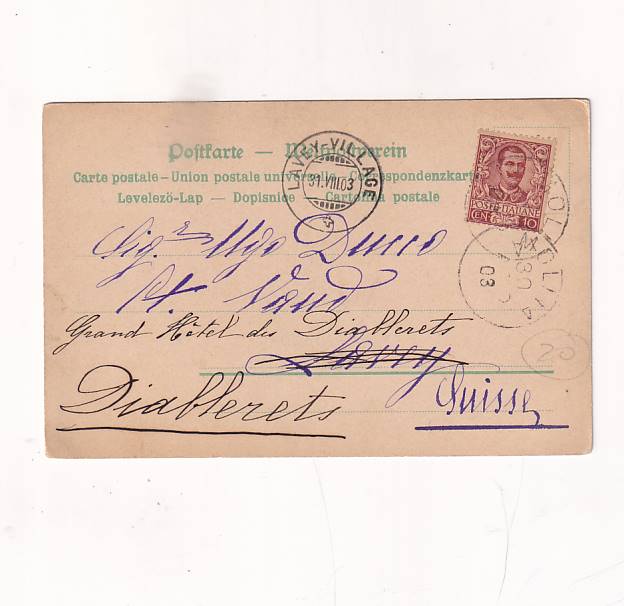 Postkarte — Weltpostverein
Carte postale – Union postale universelle – Correspondenzkarte
Levelező-Lap — Dopisnice — Cartolina postale
LAVEY-VILLAGE
31.VIII.03
POSTE ITALIANE
CENT. 10
30
03
Sig.r Ugo Ducco
Vaud
Grand Hôtel des Diablerets
Lavey
Diablerets
Suisse
20